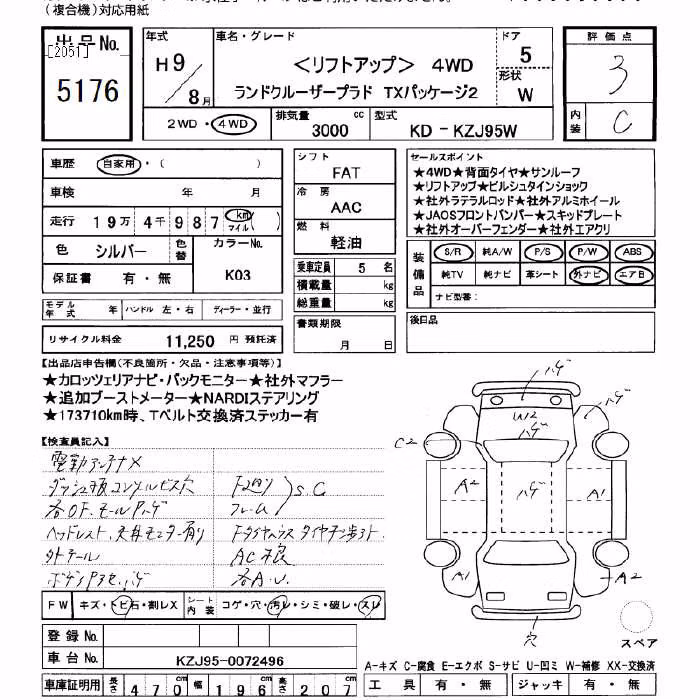 (複合機)対応用紙
出品No.
[2051]
5176
年式
H9/8月
車名・グレード
<リフトアップ> 4WD
ランドクルーザープラド TXパッケージ2
ドア
5
形状
W
2WD・4WD
排気量
3000 cc
型式
KD - KZJ95W
評価点
3
内装
C
車歴 自家用・( )
車検 年 月
走行 19万4千987 km マイル ( )
色 シルバー 色替 カラーNo.
K03
保証書 有・無
モデル年式 年 ハンドル 左・右 ディーラー・並行
リサイクル料金 11,250 円 預託済
シフト
FAT
冷房
AAC
燃料
軽油
乗車定員 5 名
積載量 kg
総重量 kg
書類期限
月 日
セールスポイント
★4WD★背面タイヤ★サンルーフ
★リフトアップ★ビルシュタインショック
★社外ラテラルロッド★社外アルミホイール
★JAOSフロントバンパー★スキッドプレート
★社外オーバーフェンダー★社外エアクリ
装備品
S/R 純A/W P/S P/W ABS
純TV 純ナビ 革シート 外ナビ エアB
ナビ型番:
後日品
【出品店申告欄(不良箇所・欠品・注意事項等)】
★カロッツェリアナビ・バックモニター★社外マフラー
★追加ブーストメーター★NARDIステアリング
★173710km時、Tベルト交換済ステッカー有
【検査員記入】
電動アンテナ×
S.C
フレーム
ヘッドレスト
外
ハゲ
W2
ハゲ
C2
A2
ハゲ
A1
A1
A2
穴
スペア
FW キズ・トビ石・割レX シート内装 コゲ・穴・汚レ・シミ・破レ・スレ
登録No.
車台No. KZJ95-0072496
車庫証明用 長さ 470cm 幅 196cm 高さ 207cm
A-キズ C-腐食 E-エクボ S-サビ U-凹ミ W-補修 XX-交換済
工具 有・無 ジャッキ 有・無